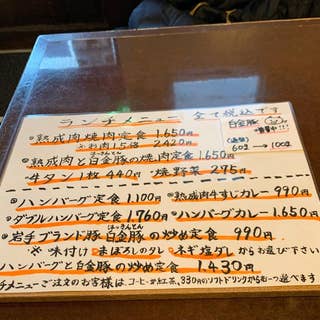 ランチメニュー 全て税込です
◎熟成肉焼肉定食 1.650円
※お肉1.5倍 2.420円
白金豚
増量中!!!
(通常)
60g → 100g
はっきんとん
◎熟成肉と白金豚の焼肉定食1.650円
牛タン1枚440円 焼野菜275円
◎ハンバーグ定食1.100円
◎熟成肉牛すじカレー990円
◎ダブルハンバーグ定食1.760円
◎ハンバーグカレー1.650円
はっきんとん
◎岩手ブランド豚白金豚の炒め定食 990円
※味付け まぼろしのタレ ネギ塩ダレ からお選び下さい
ハンバーグと白金豚の炒め定食 1.430円
チメニューご注文のお客様は、コーヒーか紅茶、330円のソフトドリンクから一つ選べます